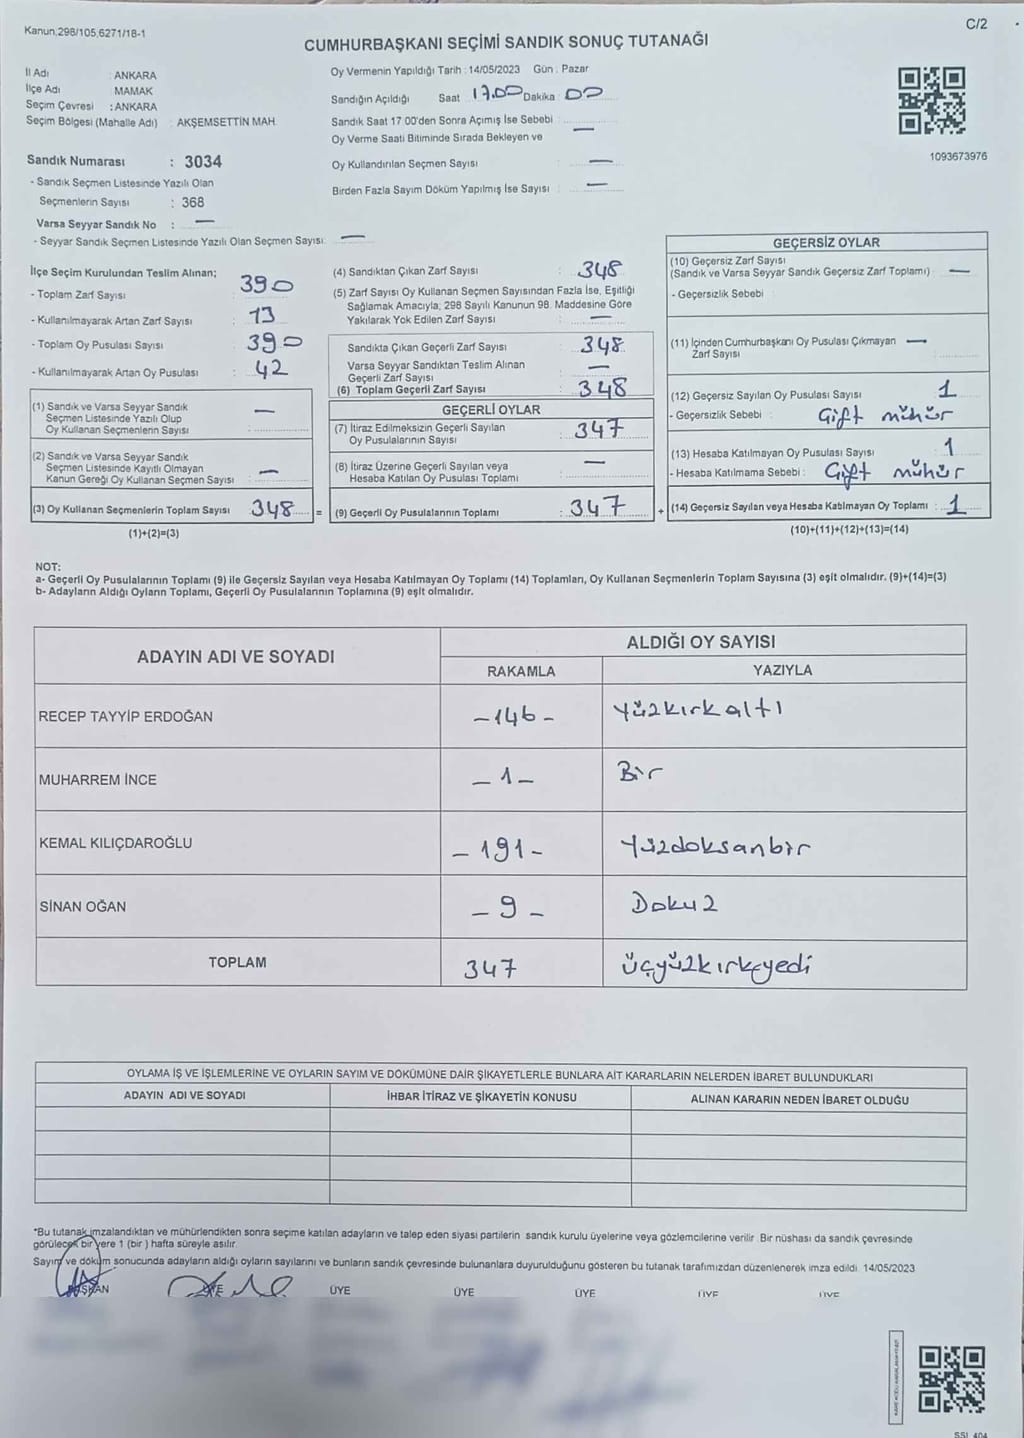 Kanun,298/105,6271/18-1
C/2
CUMHURBAŞKANI SEÇİMİ SANDIK SONUÇ TUTANAĞI
İl Adı : ANKARA
İlçe Adı MAMAK
Seçim Çevresi : ANKARA
Seçim Bölgesi (Mahalle Adı) : AKŞEMSETTİN MAH.
Sandık Numarası : 3034
- Sandık Seçmen Listesinde Yazılı Olan
Seçmenlerin Sayısı : 368
Varsa Seyyar Sandık No : —
- Seyyar Sandık Seçmen Listesinde Yazılı Olan Seçmen Sayısı: —
Oy Vermenin Yapıldığı Tarih : 14/05/2023 Gün : Pazar
Sandığın Açıldığı Saat 17.00 Dakika 00
Sandık Saat 17 00'den Sonra Açımış İse Sebebi
Oy Verme Saati Bitiminde Sırada Bekleyen ve —
Oy Kullandırılan Seçmen Sayısı —
Birden Fazla Sayım Döküm Yapılmış İse Sayısı —
1093673976
İlçe Seçim Kurulundan Teslim Alınan;
- Toplam Zarf Sayısı : 390
- Kullanılmayarak Artan Zarf Sayısı : 13
- Toplam Oy Pusulası Sayısı : 390
- Kullanılmayarak Artan Oy Pusulası : 42
(1) Sandık ve Varsa Seyyar Sandık
Seçmen Listesinde Yazılı Olup
Oy Kullanan Seçmenlerin Sayısı —
(2) Sandık ve Varsa Seyyar Sandık
Seçmen Listesinde Kayıtlı Olmayan
Kanun Gereği Oy Kullanan Seçmen Sayısı —
(3) Oy Kullanan Seçmenlerin Toplam Sayısı 348 =
(1)+(2)=(3)
(4) Sandıktan Çıkan Zarf Sayısı : 348
(5) Zarf Sayısı Oy Kullanan Seçmen Sayısından Fazla İse, Eşitliği
Sağlamak Amacıyla, 298 Sayılı Kanunun 98. Maddesine Göre
Yakılarak Yok Edilen Zarf Sayısı —
Sandıkta Çıkan Geçerli Zarf Sayısı : 348
Varsa Seyyar Sandıktan Teslim Alınan
Geçerli Zarf Sayısı —
(6) Toplam Geçerli Zarf Sayısı : 348
GEÇERLİ OYLAR
(7) İtiraz Edilmeksizin Geçerli Sayılan
Oy Pusulalarının Sayısı : 347
(8) İtiraz Üzerine Geçerli Sayılan veya
Hesaba Katılan Oy Pusulası Toplamı —
(9) Geçerli Oy Pusulalarının Toplamı : 347 +
GEÇERSİZ OYLAR
(10) Geçersiz Zarf Sayısı
(Sandık ve Varsa Seyyar Sandık Geçersiz Zarf Toplamı) : —
- Geçersizlik Sebebi :
(11) İçinden Cumhurbaşkanı Oy Pusulası Çıkmayan —
Zarf Sayısı
(12) Geçersiz Sayılan Oy Pusulası Sayısı : 1
- Geçersizlik Sebebi : Çift mühür
(13) Hesaba Katılmayan Oy Pusulası Sayısı : 1
- Hesaba Katılmama Sebebi : Çift mühür
(14) Geçersiz Sayılan veya Hesaba Katılmayan Oy Toplamı : 1
(10)+(11)+(12)+(13)=(14)
NOT:
a- Geçerli Oy Pusulalarının Toplamı (9) ile Geçersiz Sayılan veya Hesaba Katılmayan Oy Toplamı (14) Toplamları, Oy Kullanan Seçmenlerin Toplam Sayısına (3) eşit olmalıdır. (9)+(14)=(3)
b- Adayların Aldığı Oyların Toplamı, Geçerli Oy Pusulalarının Toplamına (9) eşit olmalıdır.
ADAYIN ADI VE SOYADI
ALDIĞI OY SAYISI
RAKAMLA YAZIYLA
RECEP TAYYİP ERDOĞAN -146- Yüzkırkaltı
MUHARREM İNCE -1- Bir
KEMAL KILIÇDAROĞLU -191- Yüzdoksanbir
SİNAN OĞAN -9- Dokuz
TOPLAM 347 üçyüzkırkyedi
OYLAMA İŞ VE İŞLEMLERİNE VE OYLARIN SAYIM VE DÖKÜMÜNE DAİR ŞİKAYETLERLE BUNLARA AİT KARARLARIN NELERDEN İBARET BULUNDUKLARI
ADAYIN ADI VE SOYADI İHBAR İTİRAZ VE ŞİKAYETİN KONUSU ALINAN KARARIN NEDEN İBARET OLDUĞU
*Bu tutanak imzalandıktan ve mühürlendikten sonra seçime katılan adayların ve talep eden siyasi partilerin sandık kurulu üyelerine veya gözlemcilerine verilir. Bir nüshası da sandık çevresinde
görülecek bir yere 1 (bir ) hafta süreyle asılır.
Sayım ve döküm sonucunda adayların aldığı oyların sayılarını ve bunların sandık çevresinde bulunanlara duyurulduğunu gösteren bu tutanak tarafımızdan düzenlenerek imza edildi. 14/05/2023
BAŞKAN ÜYE ÜYE ÜYE ÜYE ÜYE ÜYE
SSI 404